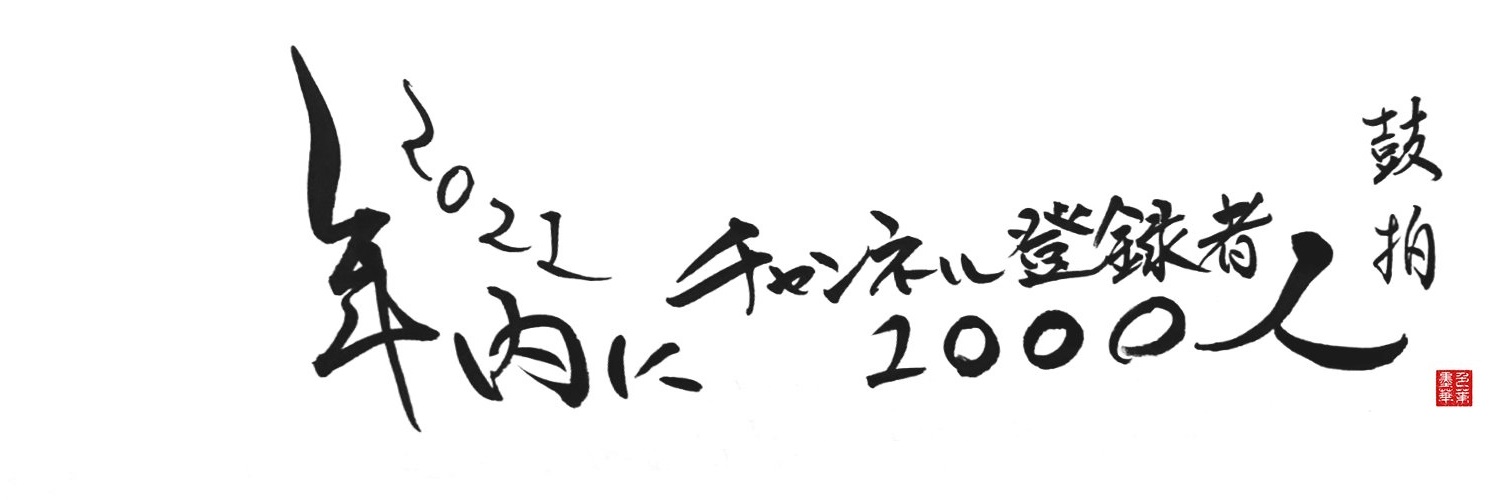 2021
年内に
チャンネル登録者
1000人
鼓拍